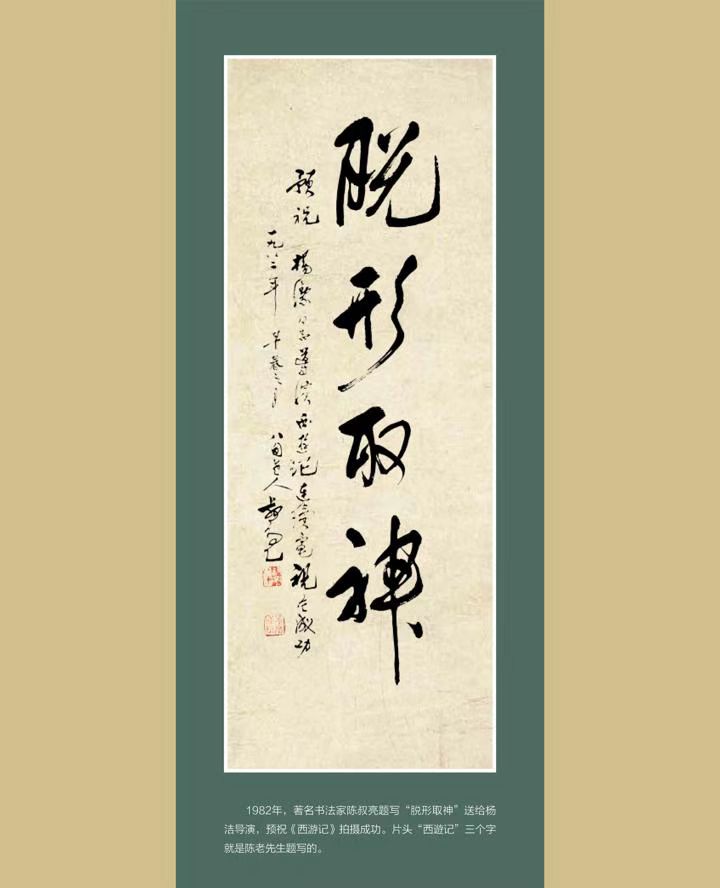 脱形取神
預祝
楊潔同志導演西遊記連續電視之成功
一九八二年 早春 月 八旬老人 叔亮
1982年，著名书法家陈叔亮题写“脱形取神”送给杨
洁导演，预祝《西游记》拍摄成功。片头“西遊記”三个字
就是陈老先生题写的。